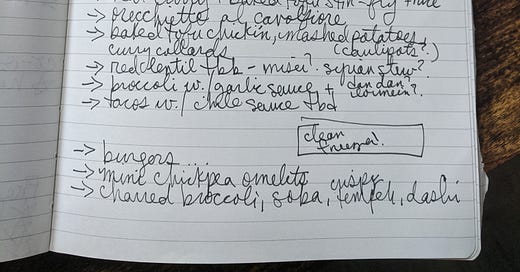 → orecchiette al cavolfiore
→ baked tofu chickin, mashed potatoes,
curry collards (caulipots?)
→ red lentil tbd - misir?
→ broccoli w/ garlic sauce + dan dan
→ tacos w/ chile sauce tbd
clean
freezer!
→ burgers...
→ mini chickpea omelits
→ charred broccoli, soba, crispy tempeh, dashi